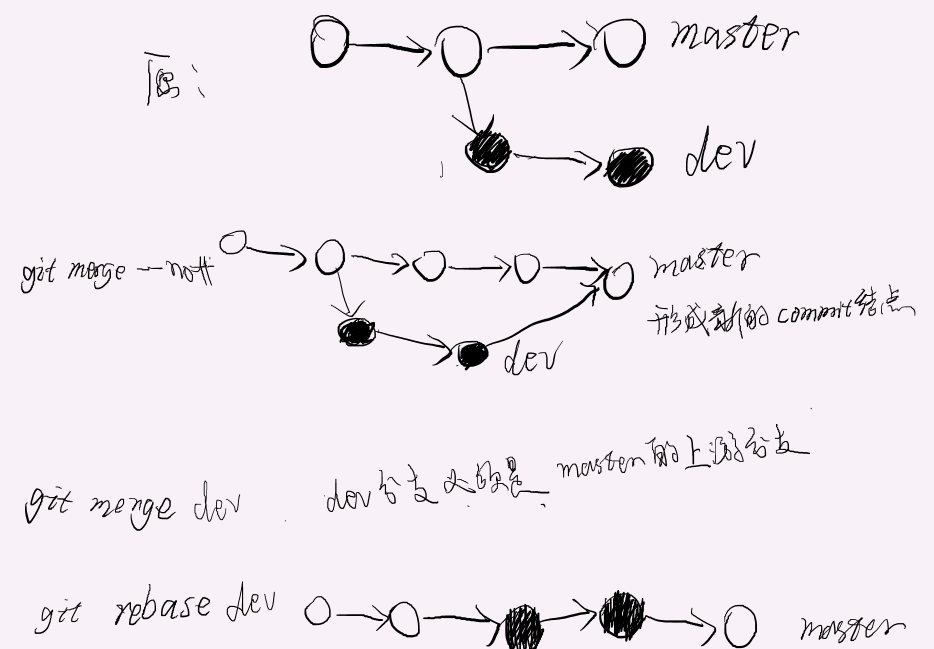 原:
master
dev
git merge --noff
master
形成新的commit结点
dev
git merge dev
dev分支必须是master的上游分支
git rebase dev
master